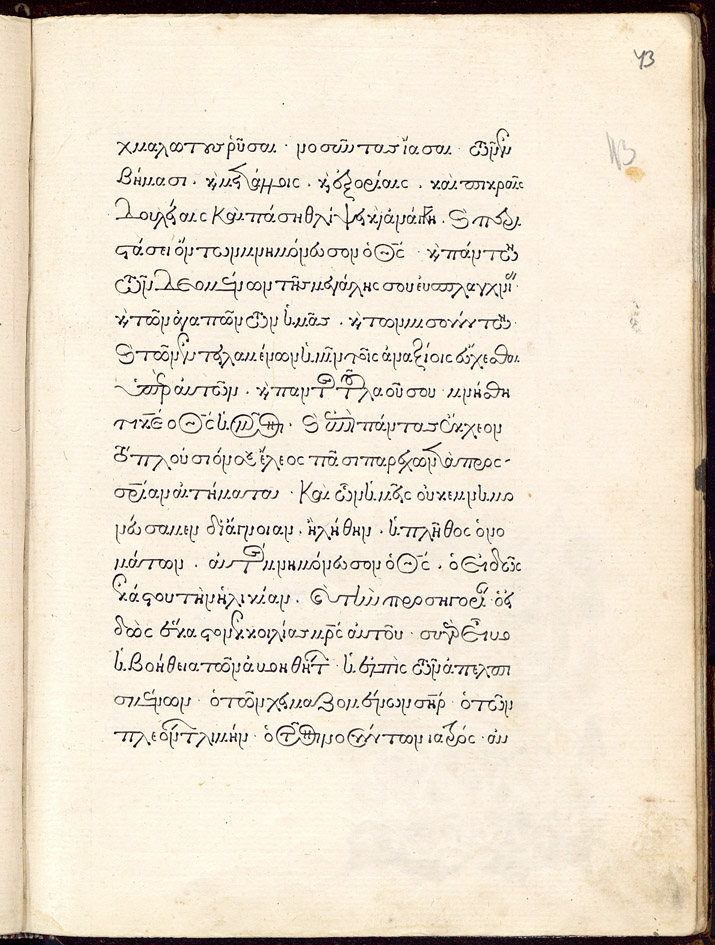 43
43
χμαλώτους ῥῦσαι · νοσοῦντας ἴασαι · τῶν ἐν
βήμασι · καὶ μετάλλοις · καὶ ἐξορίαις · καὶ πικραῖς
δουλείαις καὶ πάσῃ θλίψει καὶ ἀνάγκῃ · καὶ περι
στάσει ὄντων μνημόνευσον ὁ θς · καὶ πάντων
τῶν δεομένων τῆς μεγάλης σου εὐσπλαγχνίας ·
καὶ τῶν ἀγαπώντων ἡμᾶς · καὶ τῶν μισούντων ·
καὶ τῶν ἐντειλαμένων ἡμῖν τοῖς ἀναξίοις εὔχεσθαι
ὑπὲρ αὐτῶν · καὶ παντὸς τοῦ λαοῦ σου μνήσθητι
κε ὁ θς ἡμῶν · καὶ ἐπὶ πάντας ἔκχεον
τὸ πλούσιόν σου ἔλεος πᾶσι παρέχων τὰ πρὸς
σρίαν αἰτήματα · Καὶ ὧν ἡμεῖς οὐκ ἐμνημο
νεύσαμεν δι' ἄγνοιαν · ἢ λήθην · ἢ πλῆθος ὀνο
μάτων · αὐτὸς μνημόνευσον ὁ θς · ὁ εἰδὼς
ἑκάστου τὴν ἡλικίαν · καὶ τὴν προσηγορίαν · ὁ εἰ
δὼς ἕκαστον ἐκ κοιλίας μρς αὐτοῦ · σὺ γὰρ εἶ κε
ἡ βοήθεια τῶν ἀβοηθήτων · ἡ ἐλπὶς τῶν ἀπελπι
σμένων · ὁ τῶν χειμαζομένων σηρ · ὁ τῶν
πλεόντων λιμήν · ὁ τῶν νοσούντων ἰατρός · αὐ